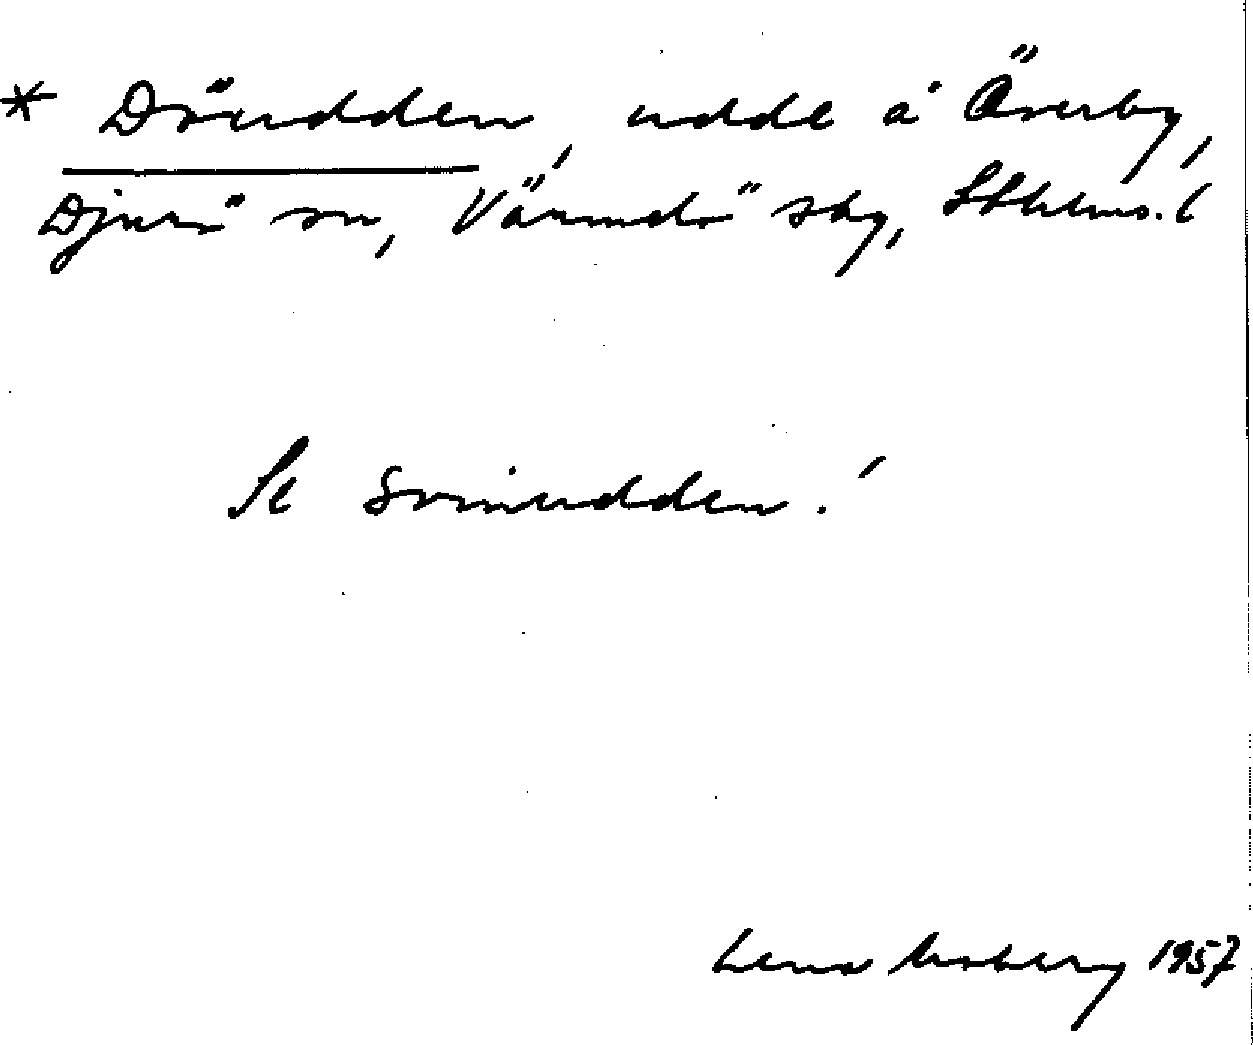 * Döudden, udde å Överby,
Djurö sn, Värmdö skg, Sthlms. l
Se Svinudden!
Lena Moberg 1957